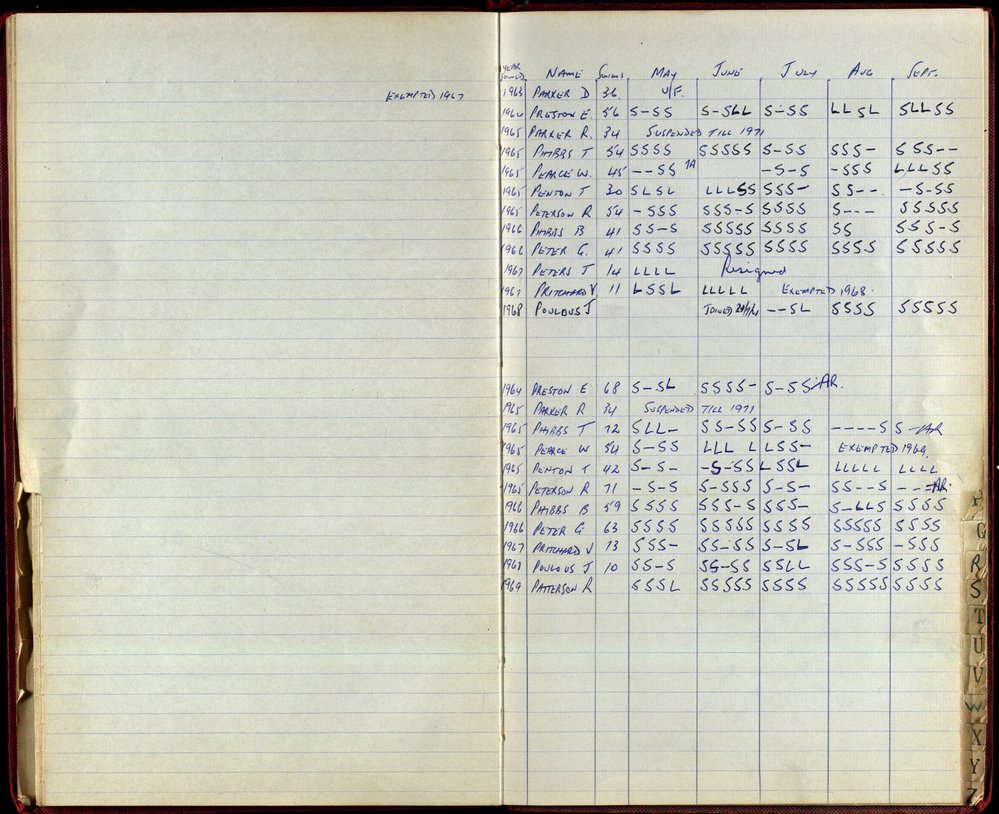 EXEMPTED 1967
YEAR JOINED NAME SWIMS MAY JUNE JULY AUG SEPT.
1963 PARKER D 36 U/F.
1964 PRESTON E. 56 S-SS S-SLL S-SS LLSL SLLSS
1965 PARKER R. 34 SUSPENDED TILL 1971
1965 PHIBBS T 54 SSSS SSSSS S-SS SSS- SSS--
1965 PEARCE W. 45 --SS -S-S -SSS LLLSS
1965 PENTON T 30 SLSL LLLSS SSS- SS-- -S-SS
1965 PETERSON R 54 -SSS SSS-S SSSS S--- SSSSS
1966 PHIBBS B 41 SS-S SSSSS SSSS SS SSS-S
1966 PETER G. 41 SSSS SSSSS SSSS SSSS SSSSS
1967 PETERS J 14 LLLL Resigned
1967 PRITCHARD V. 11 LSSL LLLLL EXEMPTED 1968.
1968 POULOUS J JOINED --SL SSSS SSSSS
1964 PRESTON E 68 S-SL SSSS- S-SS AR.
1965 PARKER R 34 SUSPENDED TILL 1971
1965 PHIBBS T 72 SLL- SS-SS S-SS ----S S- AR
1965 PEARCE W 54 S-SS LLL L LSS- EXEMPTED 1969.
1965 PENTON T 42 S-S- -S-SS LSSL LLLLL LLLL
1965 PETERSON R 71 -S-S S-SSS S-S- SS--S --- AR.
1966 PHIBBS B 59 SSSS SSS-S SSS- S-LLS SSSS
1966 PETER G 63 SSSS SSSSS SSSS SSSSS SSSS
1967 PRITCHARD V 13 SSS- SS-SS S-SL S-SSS -SSS
1968 POULOUS J 10 SS-S SS-SS SSLL SSS-S SSSS
1969 PATTERSON R SSSL SSSSS SSSS SSSSS SSSS
G
R
S
T
U
V
W
X
Y
Z